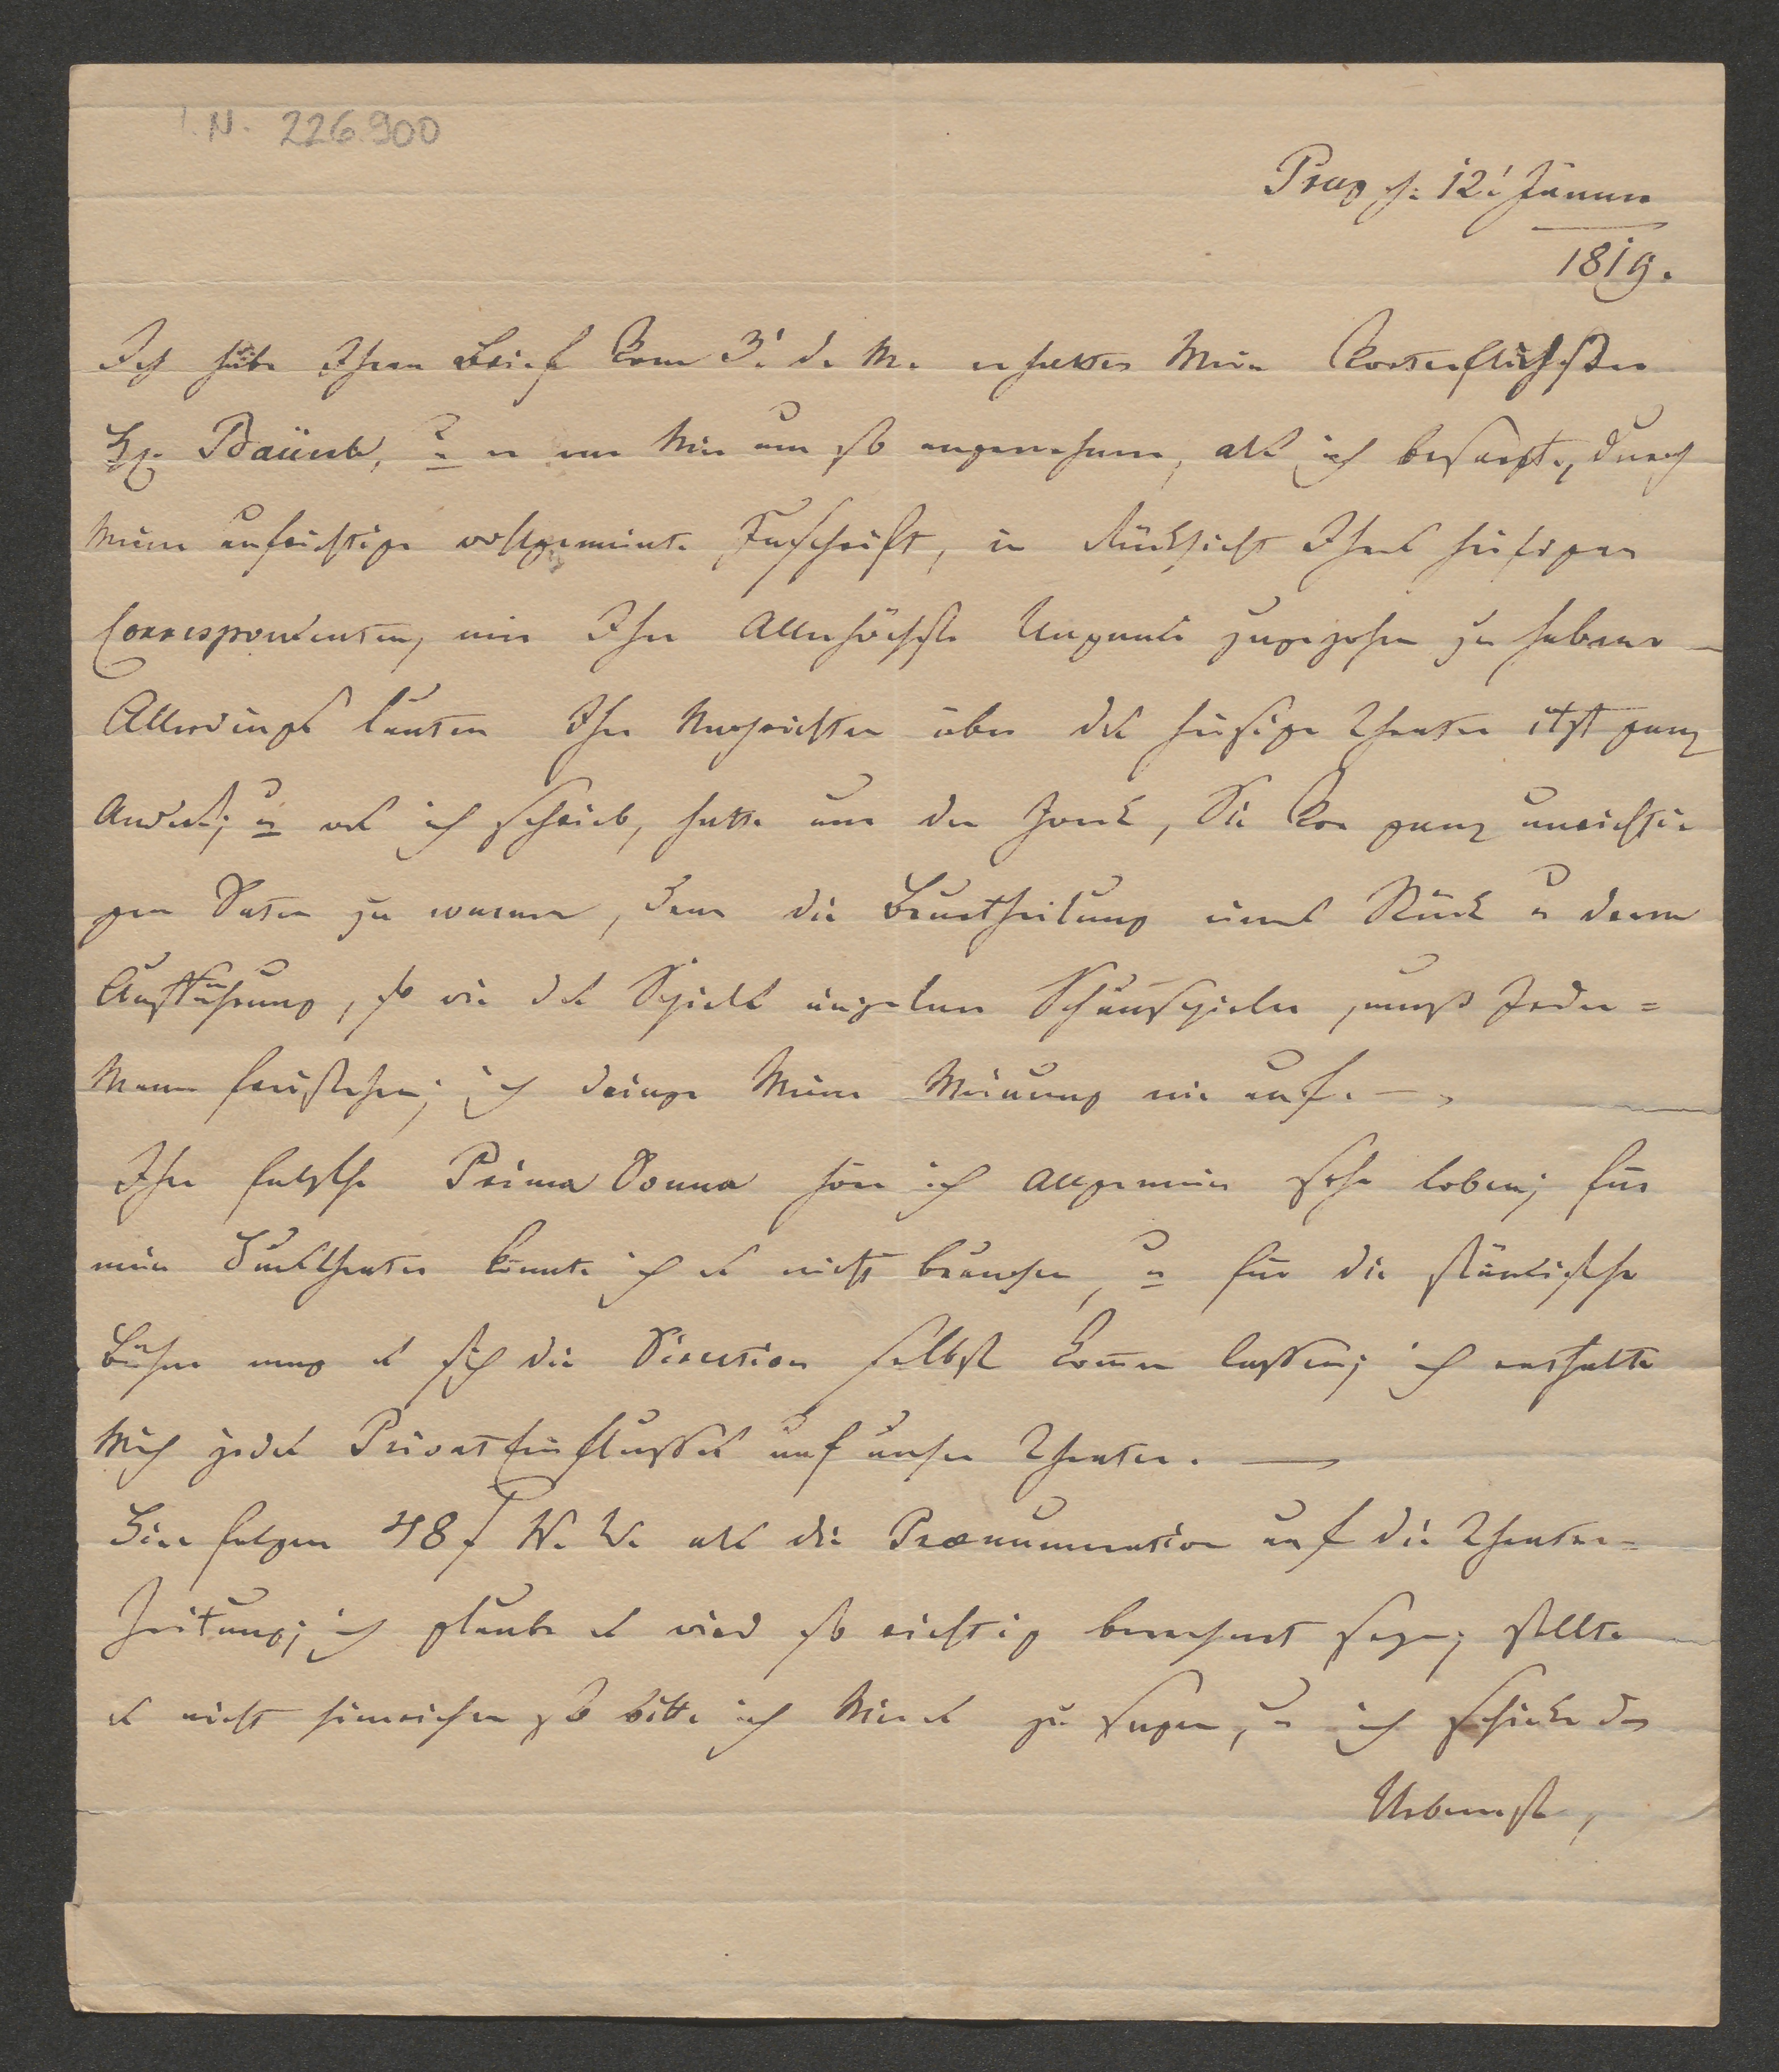 I. N. 226.900
Prag d: 12t Jänner
1819.
Ich habe Ihren Brief vom 3t d. M. erhalten Mein vortrefflichster
H: Bäuerle, u er war Mir um so angenehmer, als ich besorgte, durch
Meine aufrichtige wohlgemeinte Zuschrift, in Rücksicht Ihres hiesigen
Correspondenten, mir Ihre Allerhöchste Ungnade zugezogen zu haben
Allerdings lauten Ihre Nachrichten über das hiesige Theater itzt ganz
Anders; u was ich schrieb, hatte nur den Zweck, Sie vor ganz unrichti-
gen Daten zu warnen, denn die Beurtheilung eines Stücks u deren
Aufführung, so wie des Spiels einzelner Schauspieler, muß Jeder=
Mann freistehen; ich dringe Meine Meinung nie auf. —
Ihre hübsche Prima Donna höre ich Allgemein sehr loben; für
mein Haustheater könnte ich es nicht brauchen, u für die ständische
Bühne mag es sich die Direction selbst kom̄en lassen; ich enthalte
Mich jedes Privat Einflusses auf unser Theater. —
Hier folgen 48 f W. W. als die Praenumeration auf die Theater-
Zeitung; ich glaube es wird so richtig berechnet seyn; sollte
es nicht hinreichen so bitte ich Mir es zu sagen, u ich schicke das
Uebrige,